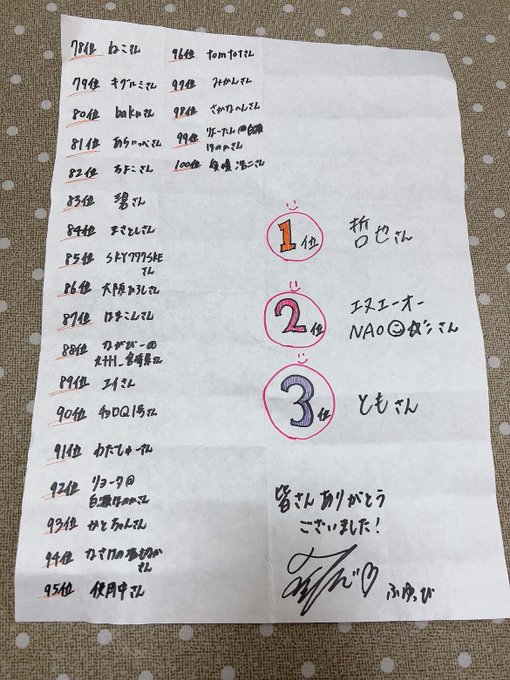 78位 ねこさん
79位 キグルミさん
80位 bakuさん
81位 あらいっぺさん
82位 ちよこさん
83位 碧さん
84位 まさとしさん
85位 SKY777SKE
さん
86位 大阪ひろしさん
87位 はまこんさん
88位 ながびー@
九州_宮崎県さん
89位 エイさん
90位 DQ1号さん
91位 わたしゅーさん
92位 リョーク@
さん
93位 かとちゃんさん
94位
さん
95位 使用中さん
96位 tomtotさん
97位 みかんさん
98位 さかなへんさん
99位 りょーたん@白瀬
さん
100位 さん
1位 哲也さん
2位 エヌエーオー
NAOさん
3位 ともさん
皆さんありがとう
ございました!
ふゆっぴ